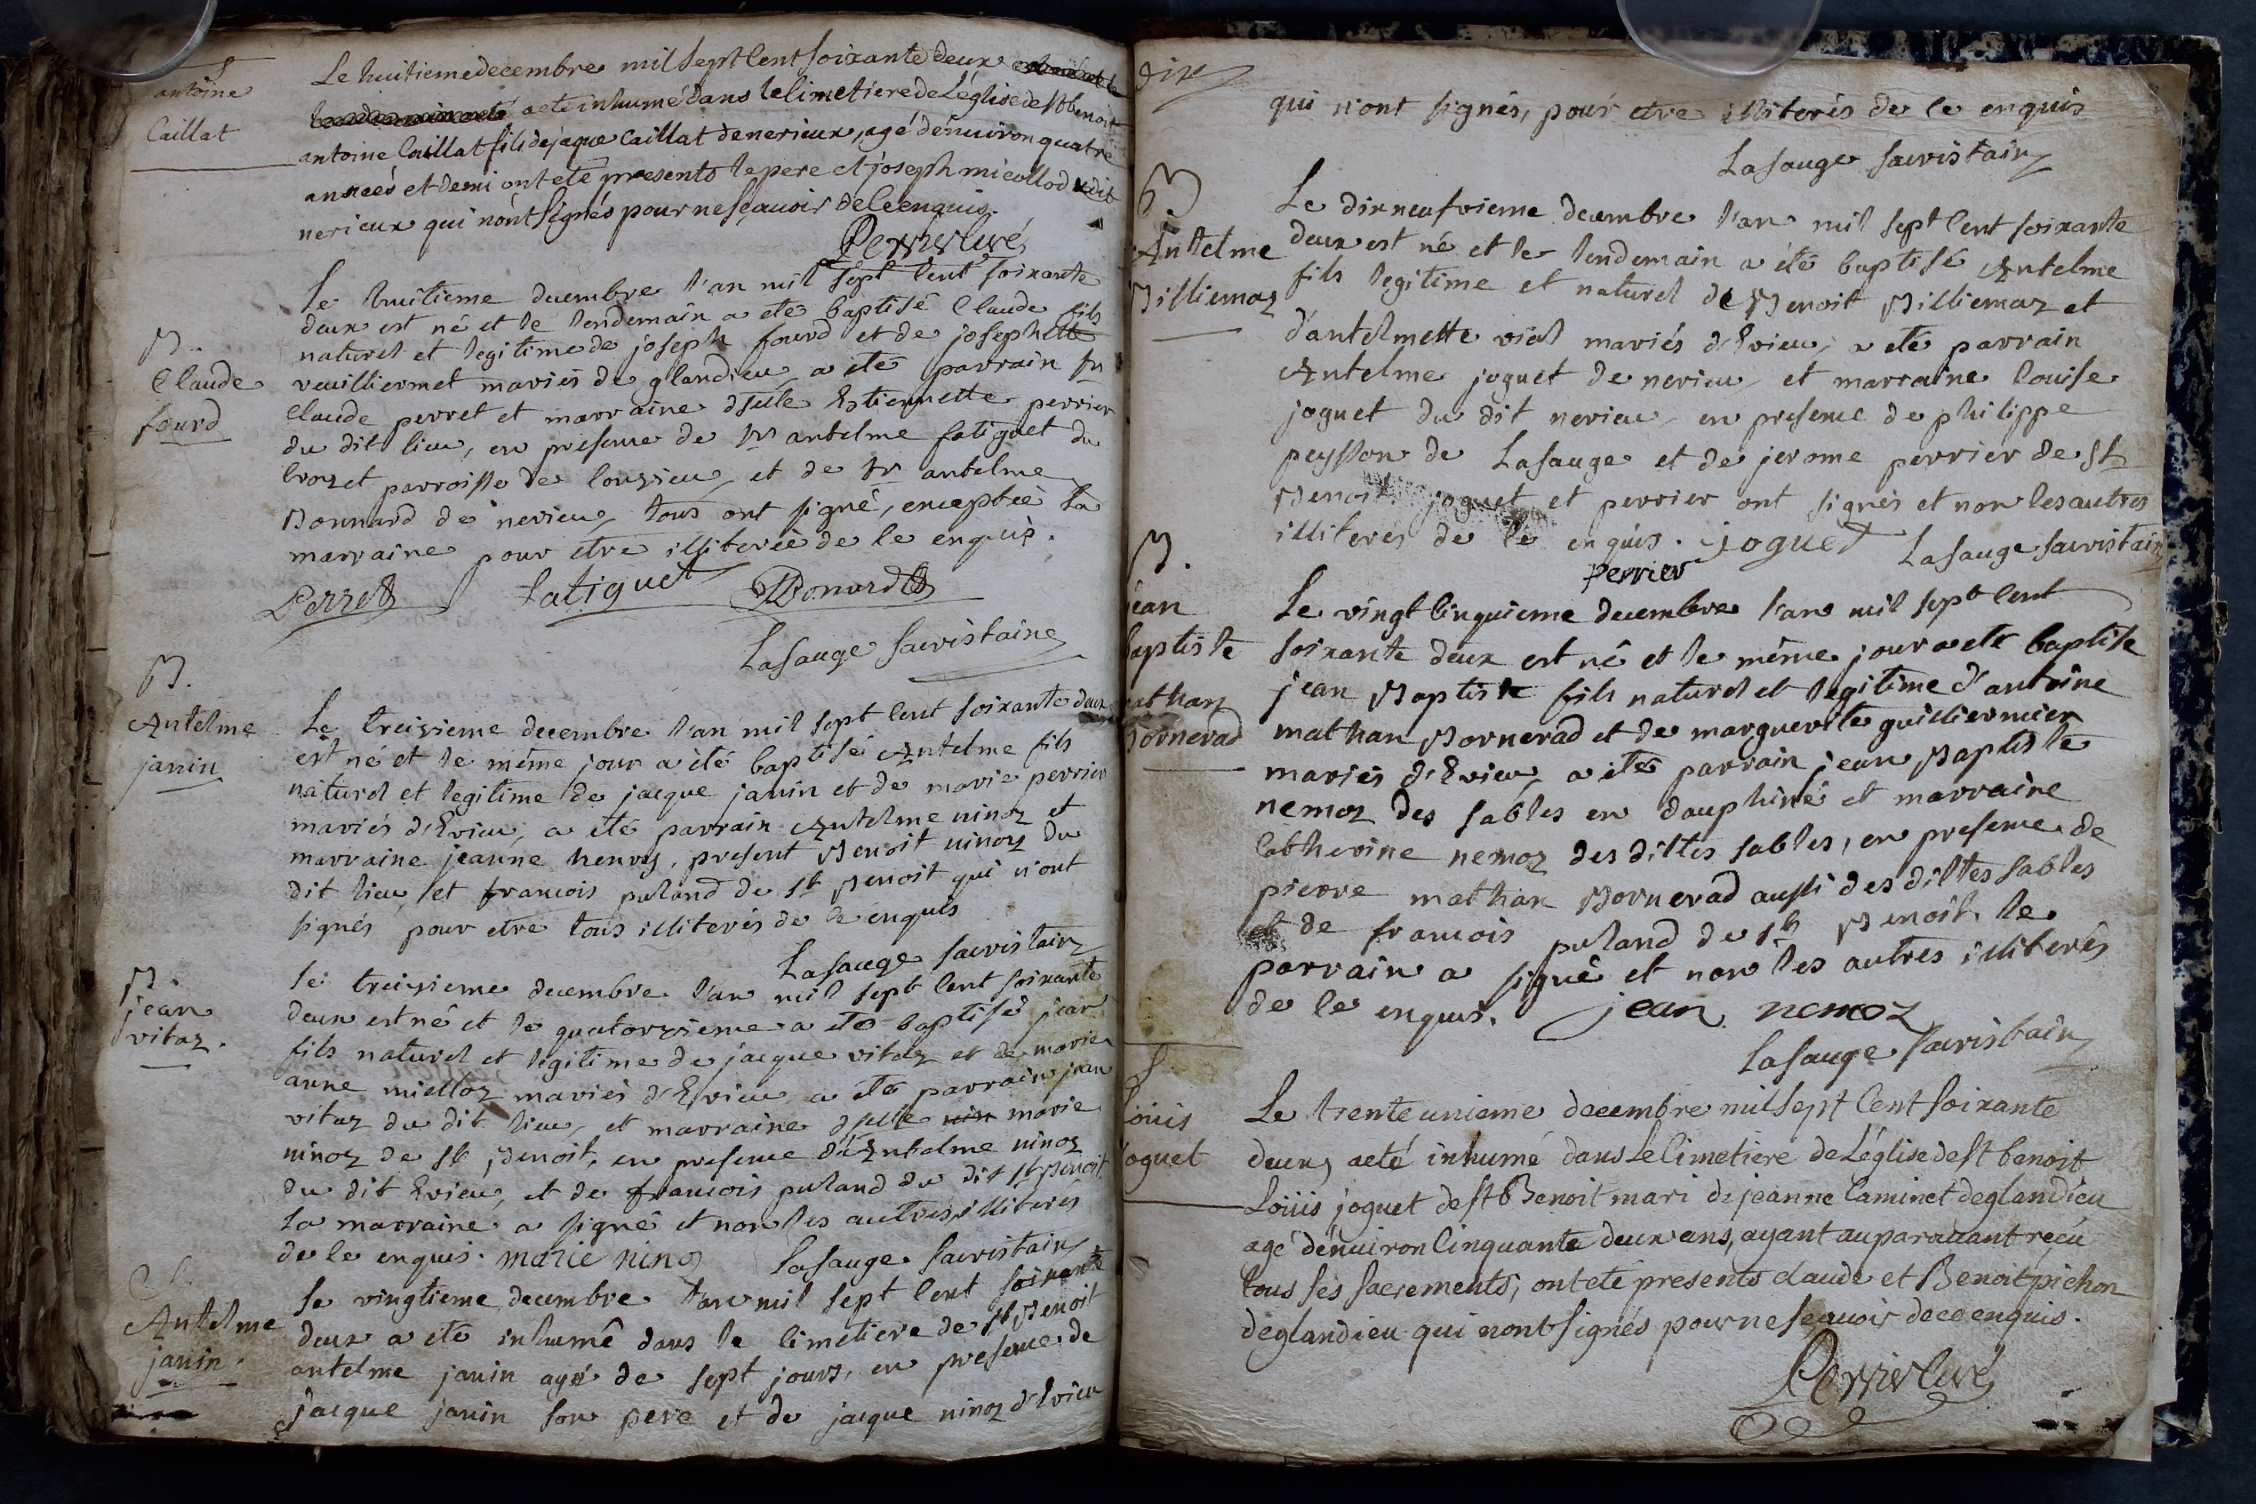 S
antoine
Caillat
Le huitieme decembre mil sept Cent soixante deux
a eté inhumé dans le Cimetiere de L'église de St benoit
antoine Caillat fils de jaque Caillat de nerieux, agé d'énuiron quatre
années et demi ont eté presents le pere et joseph micollod dudit
nerieux qui n'ont signés pour ne sçauoir de Ce enquis.
Perrier Curé
B.
Claude
fourd
Le huitieme decembre l'an mil sept Cent soixante
deux est né et le lendemain a eté baptisé Claude fils
naturel et legitime de joseph fourd et de josephette
veuilliermet mariés de glandieu a eté parrain Sr
Claude perret et marraine dselle Estiennette perrier
du dit lieu, en presence de Sr antelme fatiguet du
Crozet parroisse de louysieu, et de Sr antelme
Bonnard de nerieu, tous ont signé, exceptée la
marraine pour etre illiterée de Ce enquis.
Perret fatiguet Bonard
Lasauge Sacristain
B.
Antelme
janin
Le treizieme decembre l'an mil sept Cent soixante deux
est né et le même jour a été baptisé Antelme fils
naturel et legitime de jacque janin et de marie perrier
mariés d'Evieu, a été parrain Antelme ninoz et
marraine jeanne henry, present Benoit ninoz du
dit lieu, et francois puland de St Benoit qui n'ont
signés pour etre tous illiterés de Ce enquis
Lasauge Sacristain
B.
jean
vitoz.
Le treizieme decembre l'an mil sept Cent soixante
deux est né et le quatorzieme a eté baptisé jean
fils naturel et legitime de jacque vitoz et de marie
anne miettoz mariés d'Evieu a eté parrain jean
vitoz du dit lieu, et marraine dselle marie
ninoz de St Benoit, en presence d'Antelme ninoz
du dit Evieu, et de francois puland du dit St Benoit
la marraine a signé et non les autres illiterés
de Ce enquis. marie ninoz Lasauge Sacristain
S.
Antelme
janin.
Le vingtieme decembre l'an mil sept Cent soixante
deux a eté inhumé dans le Cimetiere de St Benoit
antelme janin agé de sept jours, en presence de
jacque janin son pere et de jacque ninoz d'Evieu
dix
qui n'ont signés, pour etre illiterés de Ce enquis
Lasauge Sacristain
B
Antelme
Billiemaz
Le dixneufvieme decembre l'an mil sept Cent soixante
deux est né et le lendemain a été baptisé Antelme
fils legitime et naturel de Benoit Billiemaz et
d'antelmette vial mariés d'Evieu, a eté parrain
Antelme joguet de nerieu, et marraine louise
joguet du dit nerieu, en presence de philippe
peysson de Lasauge et de jerome perrier de St
Benoit. joguet et perrier ont signés et non les autres
illiterés de Ce enquis. joguet Lasauge Sacristain
perrier
B.
jean
baptiste
mathan
Bornerad
Le vingt Cinquieme decembre l'an mil sept Cent
soixante deux est né et le même jour a eté baptisé
jean Baptiste fils naturel et legitime d'antoine
mathan Bornerad et de marguerite guilliermier
mariés d'Evieu, a eté parrain jean Baptiste
nemoz des sables en dauphiné et marraine
Catherine nemoz des dittes sables, en presence de
pierre mathan Bornerad aussi des dittes sables
et de francois puland de St Benoit. le
parrain a signé et non les autres illiterés
de Ce enquis. jean nemoz
Lasauge Sacristain
S
Loüis
joguet
Le trente unieme decembre mil sept Cent soixante
deux, a eté inhumé dans Le Cimetiere de L'église de St benoit
Loüis joguet de St Benoit mari de jeanne Caminet de glandieu
agé d'énuiron Cinquante deux ans, ayant auparauant reçu
tous ses sacrements, ont eté presents Claude et Benoit pichon
de glandieu qui n'ont signés pour ne sçauoir de Ce enquis.
Perrier Curé